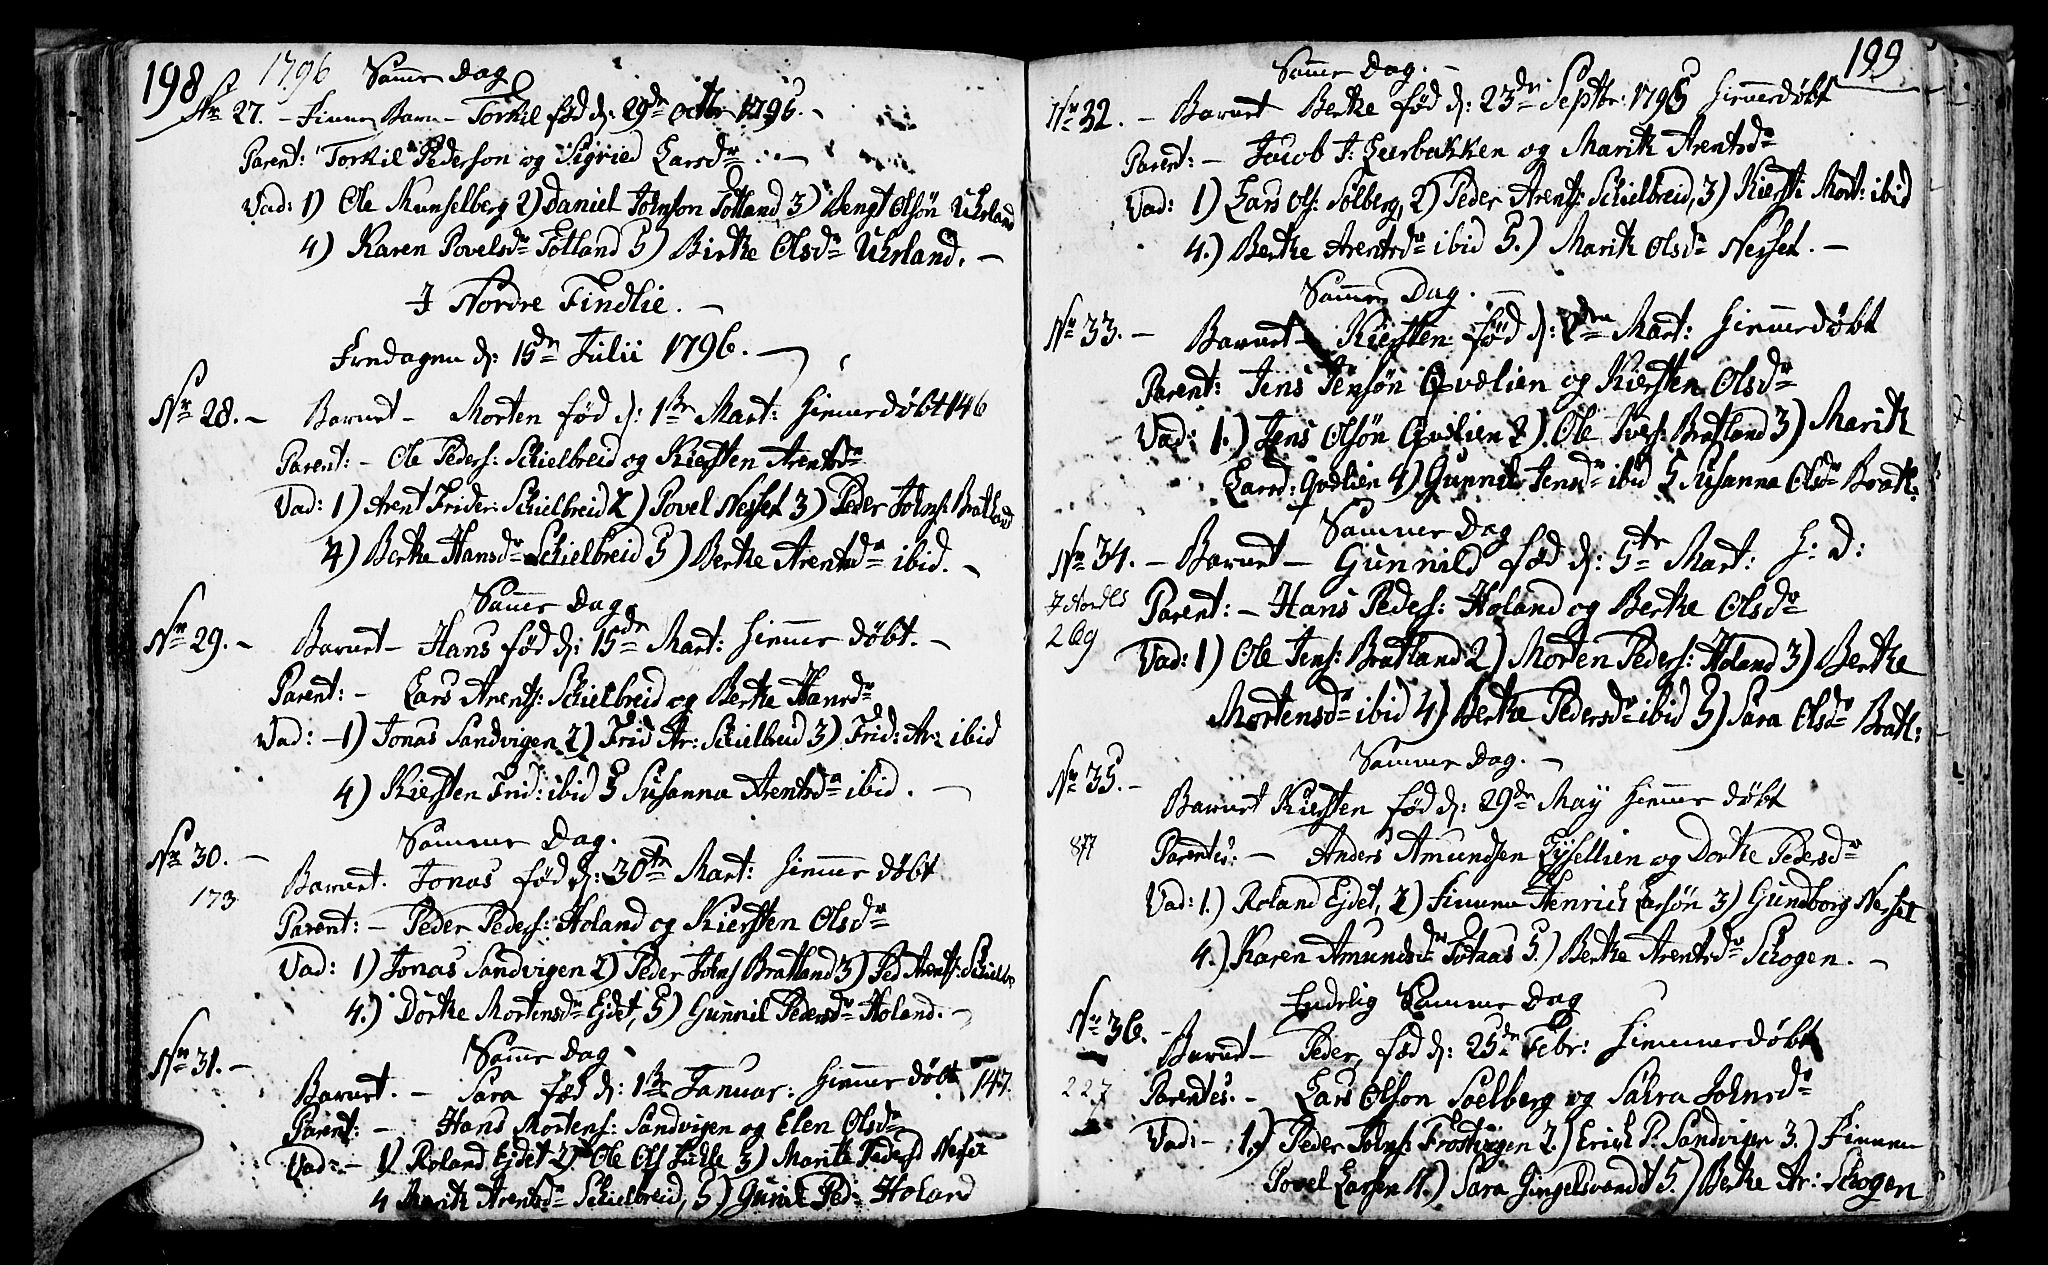 198 1796 Samme Dag
No 27. - Finne Barn - Torkil fød d: 29de Octbr 1795. -
Parent: Torkil Pederson og Sigried Larsdr. -
Vad: 1) Ole Kunselberg 2) Daniel Johnson Totland 3) Bengt Olsøn Uhrland
4) Karen Povelsdr Totland 5) Birtke Olsdr Uhrland. -
I Nordre Findlie. -
Fredagen d: 15de Julii 1796. -
Nr 28. - Barnet - Morten fød d: 1ste Mart: hiemmedøbt 146
Parent: - Ole Peders: Schielbreid og Kiersten Arentsdr
Vad: 1) Arent Frider: Schielbreid 2) Povel Nesset 3) Peder Johns: Bratland
4) Berthe Hansdr Schielbreid 5) Berthe Arentsdr ibid. -
Samme Dag
Nr 29. - Barnet - Hans fød d: 15de Mart: hiemme døbt. -
Parent: - Lars Arents: Schielbreid og Berthe Hansdr
Vad: - 1) Jonas Sandvigen 2) Frid Ar: Schielbreid 3) Frid: Ar: ibid
4) Kiersten Frid: ibid 5 Susanna Arentsdr ibid. -
Samme Dag. -
Nr 30. - Barnet. Jonas fød d: 30te Mart: hiemme døbt
173
Parent: - Peder Peders: Holand og Kiersten Olsdr
Vad: 1) Jonas Sandvigen 2) Peder Johns Bratland 3) Ped Arents: Schielbr
4.) Dorthe Mortensdr Ejdet, 5) Gunnil Pedersdr Holand. -
Samme Dag
Nr 31. - Barnet. - Sara fød d: 1ste Januar: hiemme døbt 147.
Parent: - Hans Mortens: Sandvigen og Elen Olsdr
Vad: - 1) Roland Ejdet 2) Ole Ols 3) Marith Pedersd Nesset
4 Marith Arentsdr Schielbreid, 5) Gunil Ped: Holand
199
Samme Dag. -
Nr 32. - Barnet Berthe fød d: 23de Septbr: 1795 hiemmedøbt
Parent: - Jacob J: Leerbakken og Marith Arentsdr
Vad: 1) Lars Ols: Solberg, 2) Peder Arents: Schielbreid, 3) Kiersti Mort: ibid
4.) Berthe Arentsdr ibid 5.) Marith Olsdr Nesset. -
Samme Dag. -
Nr 33. - Barnet - Kiersten fød d: Mart: hiemmedøbt
Parent: Jens Jensøn Qvalien og Kiersten Olsdr
Vad: 1.) Jens Olsøn Qvalien 2) Ole Ivers: Bratland 3) Marith
Larsd: Qvalien 4) Gunnil Jensdr ibid 5 Susanna Olsdr Bratl:
Sammer Dag
Nr 34. - Barnet - Gunnild fød d: 5te Mart: h: d:
269
Parent: - Hans Peders: Holand og Berthe Olsdr
Vad: 1) Ole Jens: Bratland 2) Morten Peders: Holand 3) Berthe
Mortensdr ibid 4) Berthe Pedersdr ibid 5) Sara Olsdr Bratl:
Sammer Dag. -
Nr 35. - Barnet Kiersten fød d: 29de May hiemme døbt
877
Parentes: - Anders Amundsen og Dorthe Pedersdr
Vad: 1.) Roland Ejdet, 2) Finnen Henrich Larsøn 3) Gundborg Nesset
4.) Karen Amundsdr 5.) Berthe Arentsdr Schogen. -
Endelig Samme Dag
Nr 36. - Barnet - Peder, fød d: 25de Febr: hiemmedøbt
227
Parentes. - Lars Olson Soelberg og Sahra Johnsdr
Vad: - 1.) Peder Johns: Frostvigen 2.) Erich P. Sandvigen 3.) Finnen
Povel Larsen 4.) Sara Gingelsvandt 5.) Berthe Ar: Schogen